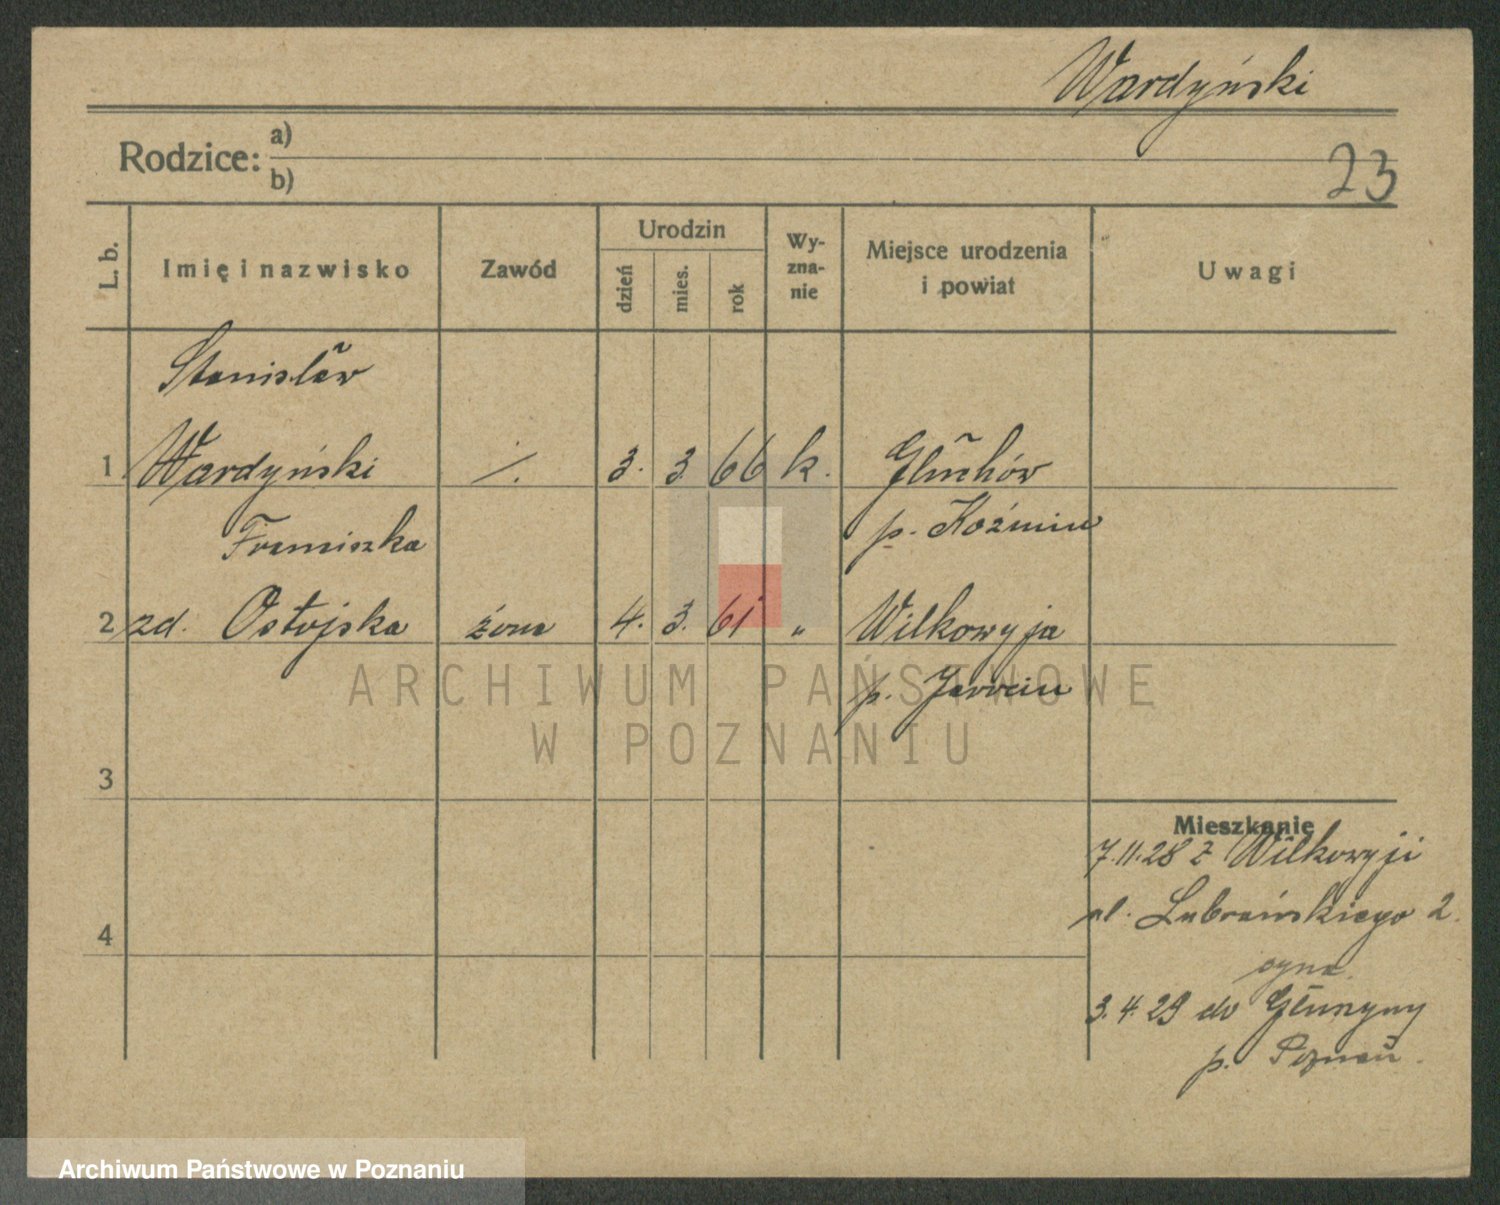 Wardyński
Rodzice: a)
b)
23
L. b.
Imię i nazwisko
Zawód
Urodzin
dzień
mies.
rok
Wy-
zna-
nie
Miejsce urodzenia
i powiat
Uwagi
Stanisław
1 Wardyński ./. 3. 3. 66 k. Głuchów
Franciszka p. Koźmin
2 zd. Ostojska żona 4. 3. 61 „ Wilkowyja
p. Jarocin
3
4
Mieszkanie
7.11.28 z Wilkowyji
ul. Lubrańskiego 2.
3.4.29 do Głuszyny
p. Poznań.
ARCHIWUM PAŃSTWOWE
W POZNANIU
Archiwum Państwowe w Poznaniu